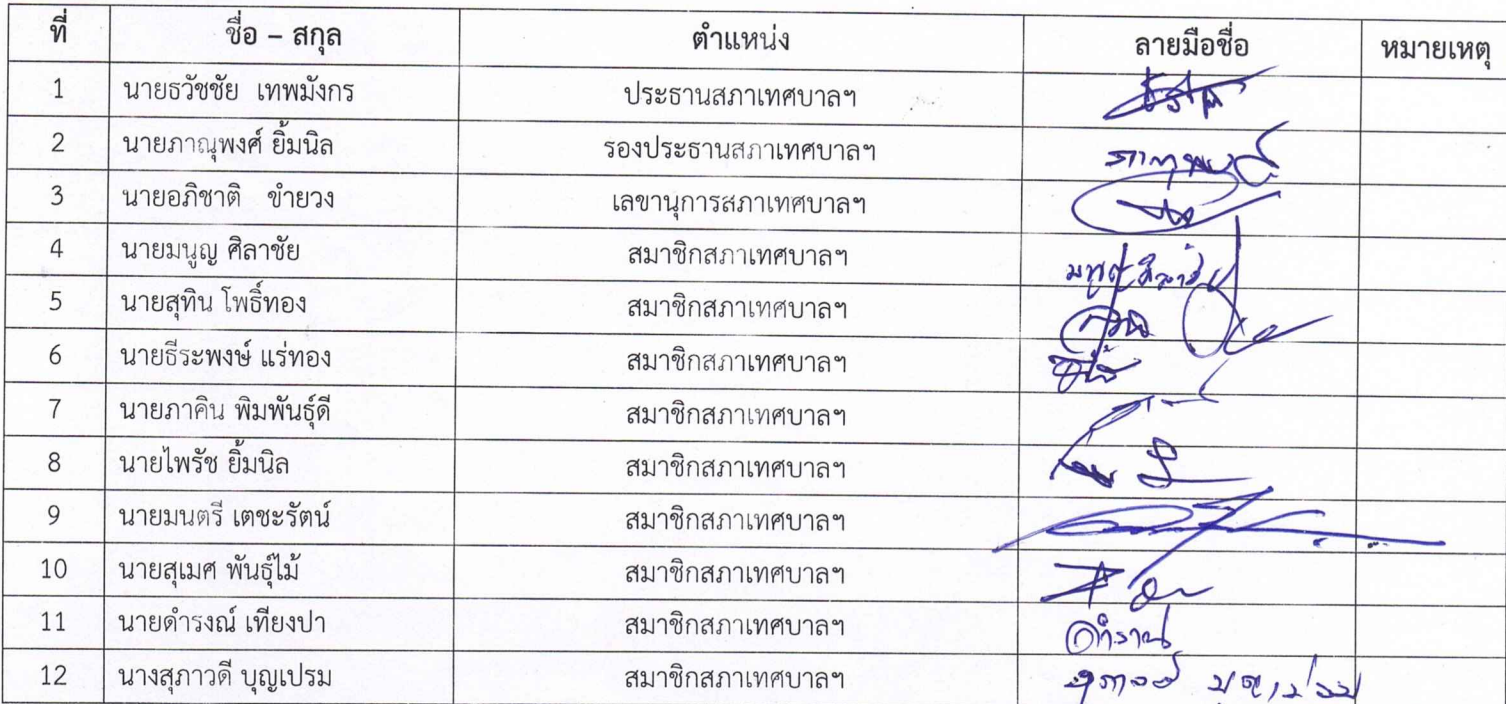 ที่ ชื่อ – สกุล ตำแหน่ง ลายมือชื่อ หมายเหตุ
1 นายธวัชชัย เทพมังกร ประธานสภาเทศบาลฯ
2 นายภาณุพงศ์ ยิ้มนิล รองประธานสภาเทศบาลฯ ภาณุพงศ์
3 นายอภิชาติ ขำยวง เลขานุการสภาเทศบาลฯ
4 นายมนูญ ศิลาชัย สมาชิกสภาเทศบาลฯ มนูญ ศิลาชัย
5 นายสุทิน โพธิ์ทอง สมาชิกสภาเทศบาลฯ
6 นายธีระพงษ์ แร่ทอง สมาชิกสภาเทศบาลฯ
7 นายภาคิน พิมพันธุ์ดี สมาชิกสภาเทศบาลฯ
8 นายไพรัช ยิ้มนิล สมาชิกสภาเทศบาลฯ
9 นายมนตรี เตชะรัตน์ สมาชิกสภาเทศบาลฯ
10 นายสุเมศ พันธุ์ไม้ สมาชิกสภาเทศบาลฯ
11 นายดำรงณ์ เทียงปา สมาชิกสภาเทศบาลฯ
12 นางสุภาวดี บุญเปรม สมาชิกสภาเทศบาลฯ สุภาวดี บุญเปรม